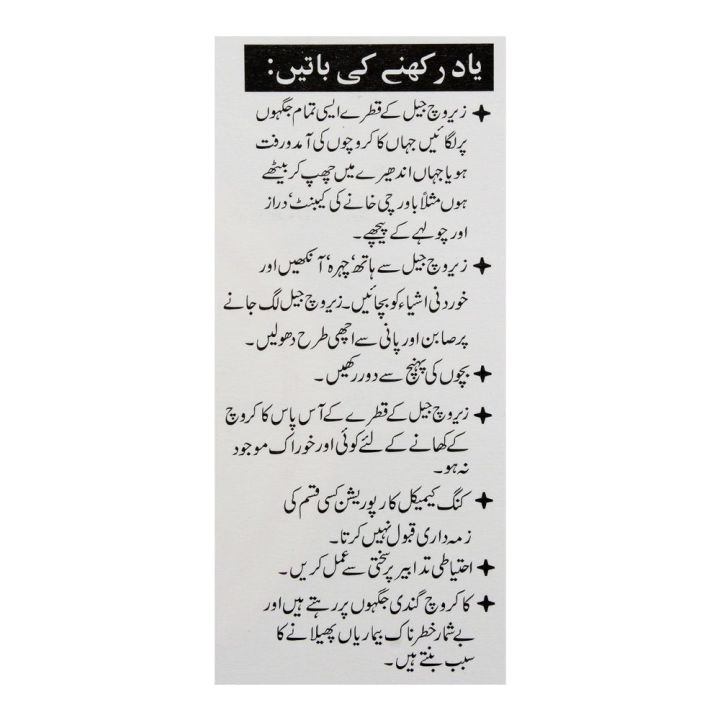 یاد رکھنے کی باتیں:
زیروچ جیل کے قطرے ایسی تمام جگہوں
پر لگائیں جہاں کاکروچوں کی آمدورفت
ہو یا جہاں اندھیرے میں چھپ کر بیٹھے
ہوں مثلاً باورچی خانے کی کیبنٹ‘ دراز
اور چولہے کے پیچھے۔
زیروچ جیل سے ہاتھ‘ چہرہ‘ آنکھیں اور
خوردنی اشیاء کو بچائیں۔ زیروچ جیل لگ جانے
پر صابن اور پانی سے اچھی طرح دھولیں۔
بچوں کی پہنچ سے دور رکھیں۔
زیروچ جیل کے قطرے کے آس پاس کاکروچ
کے کھانے کے لئے کوئی اور خوراک موجود
نہ ہو۔
کنگ کیمیکل کارپوریشن کسی قسم کی
زمہ داری قبول نہیں کرتا۔
احتیاطی تدابیر پر سختی سے عمل کریں۔
کاکروچ گندی جگہوں پر رہتے ہیں اور
بے شمار خطرناک بیماریاں پھیلانے کا
سبب بنتے ہیں۔